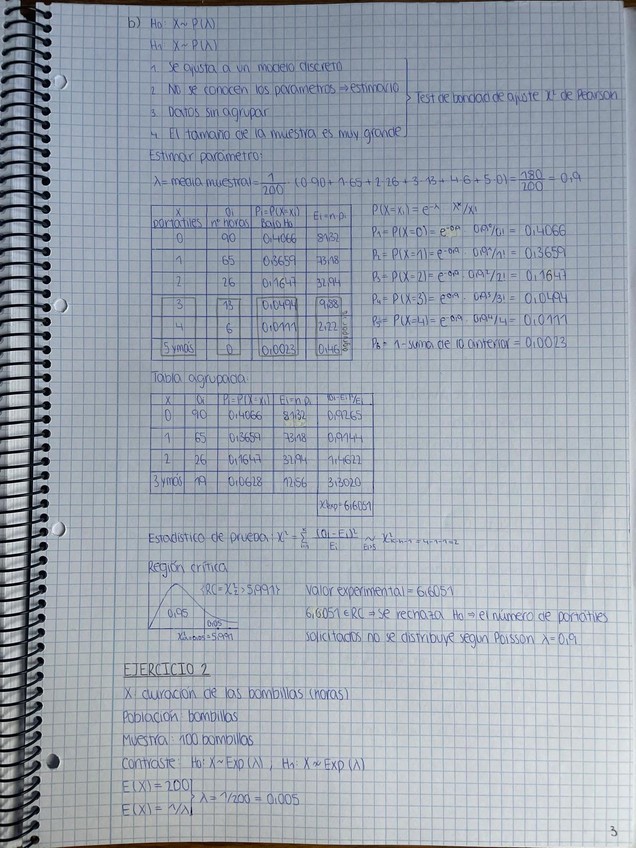 b) H₀: X~P(λ)
H₁ X≁P(λ)
1. Se ajusta a un modelo discreto
2. No se conocen los parámetros ⇒ estimarlo
3. Datos sin agrupar
4. El tamaño de la muestra es muy grande
Test de bondad de ajuste χ² de Pearson
Estimar parámetro:
λ = media muestral = 1/200 · (0·90 + 1·65 + 2·26 + 3·13 + 4·6 + 5·0) = 180/200 = 0'9
x portátiles | Oi nº horas | Pi=P(X=xi) Bajo H₀ | Ei=n·pi
0 | 90 | 0,4066 | 81,32
1 | 65 | 0,3659 | 73,18
2 | 26 | 0,1647 | 32,94
3 | 13 | 0,0494 | 9,88
4 | 6 | 0,0111 | 2,22
5 y más | 0 | 0,0023 | 0,46
P(X=xi) = e^-λ · λ^xi/xi!
P₁ = P(X=0) = e^-0,9 · 0,9⁰/0! = 0,4066
P₂ = P(X=1) = e^-0,9 · 0,9¹/1! = 0,3659
P₃ = P(X=2) = e^-0,9 · 0,9²/2! = 0,1647
P₄ = P(X=3) = e^-0,9 · 0,9³/3! = 0,0494
P₅ = P(X=4) = e^-0,9 · 0,9⁴/4 = 0,0111
P₆ = 1-suma de lo anterior = 0,0023
Tabla agrupada:
X | Oi | Pi=P(X=xi) | Ei=n·pi | (Oi-Ei)²/Ei
0 | 90 | 0,4066 | 81,32 | 0,9265
1 | 65 | 0,3659 | 73,18 | 0,9144
2 | 26 | 0,1647 | 32,94 | 1,4622
3 y más | 19 | 0,0628 | 12,56 | 3,3020
χ²exp = 6,6051
Estadístico de prueba: χ² = Σ (Oi-Ei)²/Ei ~ χ² k-r-1=4-1-1=2
Región crítica
{RC=χ²₂ > 5,991}
0,95
0,05
=5,991
Valor experimental = 6,6051
6,6051 ∈ RC ⇒ se rechaza H₀ ⇒ el número de portátiles
solicitados no se distribuye según Poisson λ=0,9
EJERCICIO 2
X duración de las bombillas (horas)
Población: bombillas
Muestra: 100 bombillas
Contraste: H₀: X~Exp(λ), H₁: X≁Exp(λ)
E(X) = 200
E(X) = 1/λ
λ = 1/200 = 0,005
3